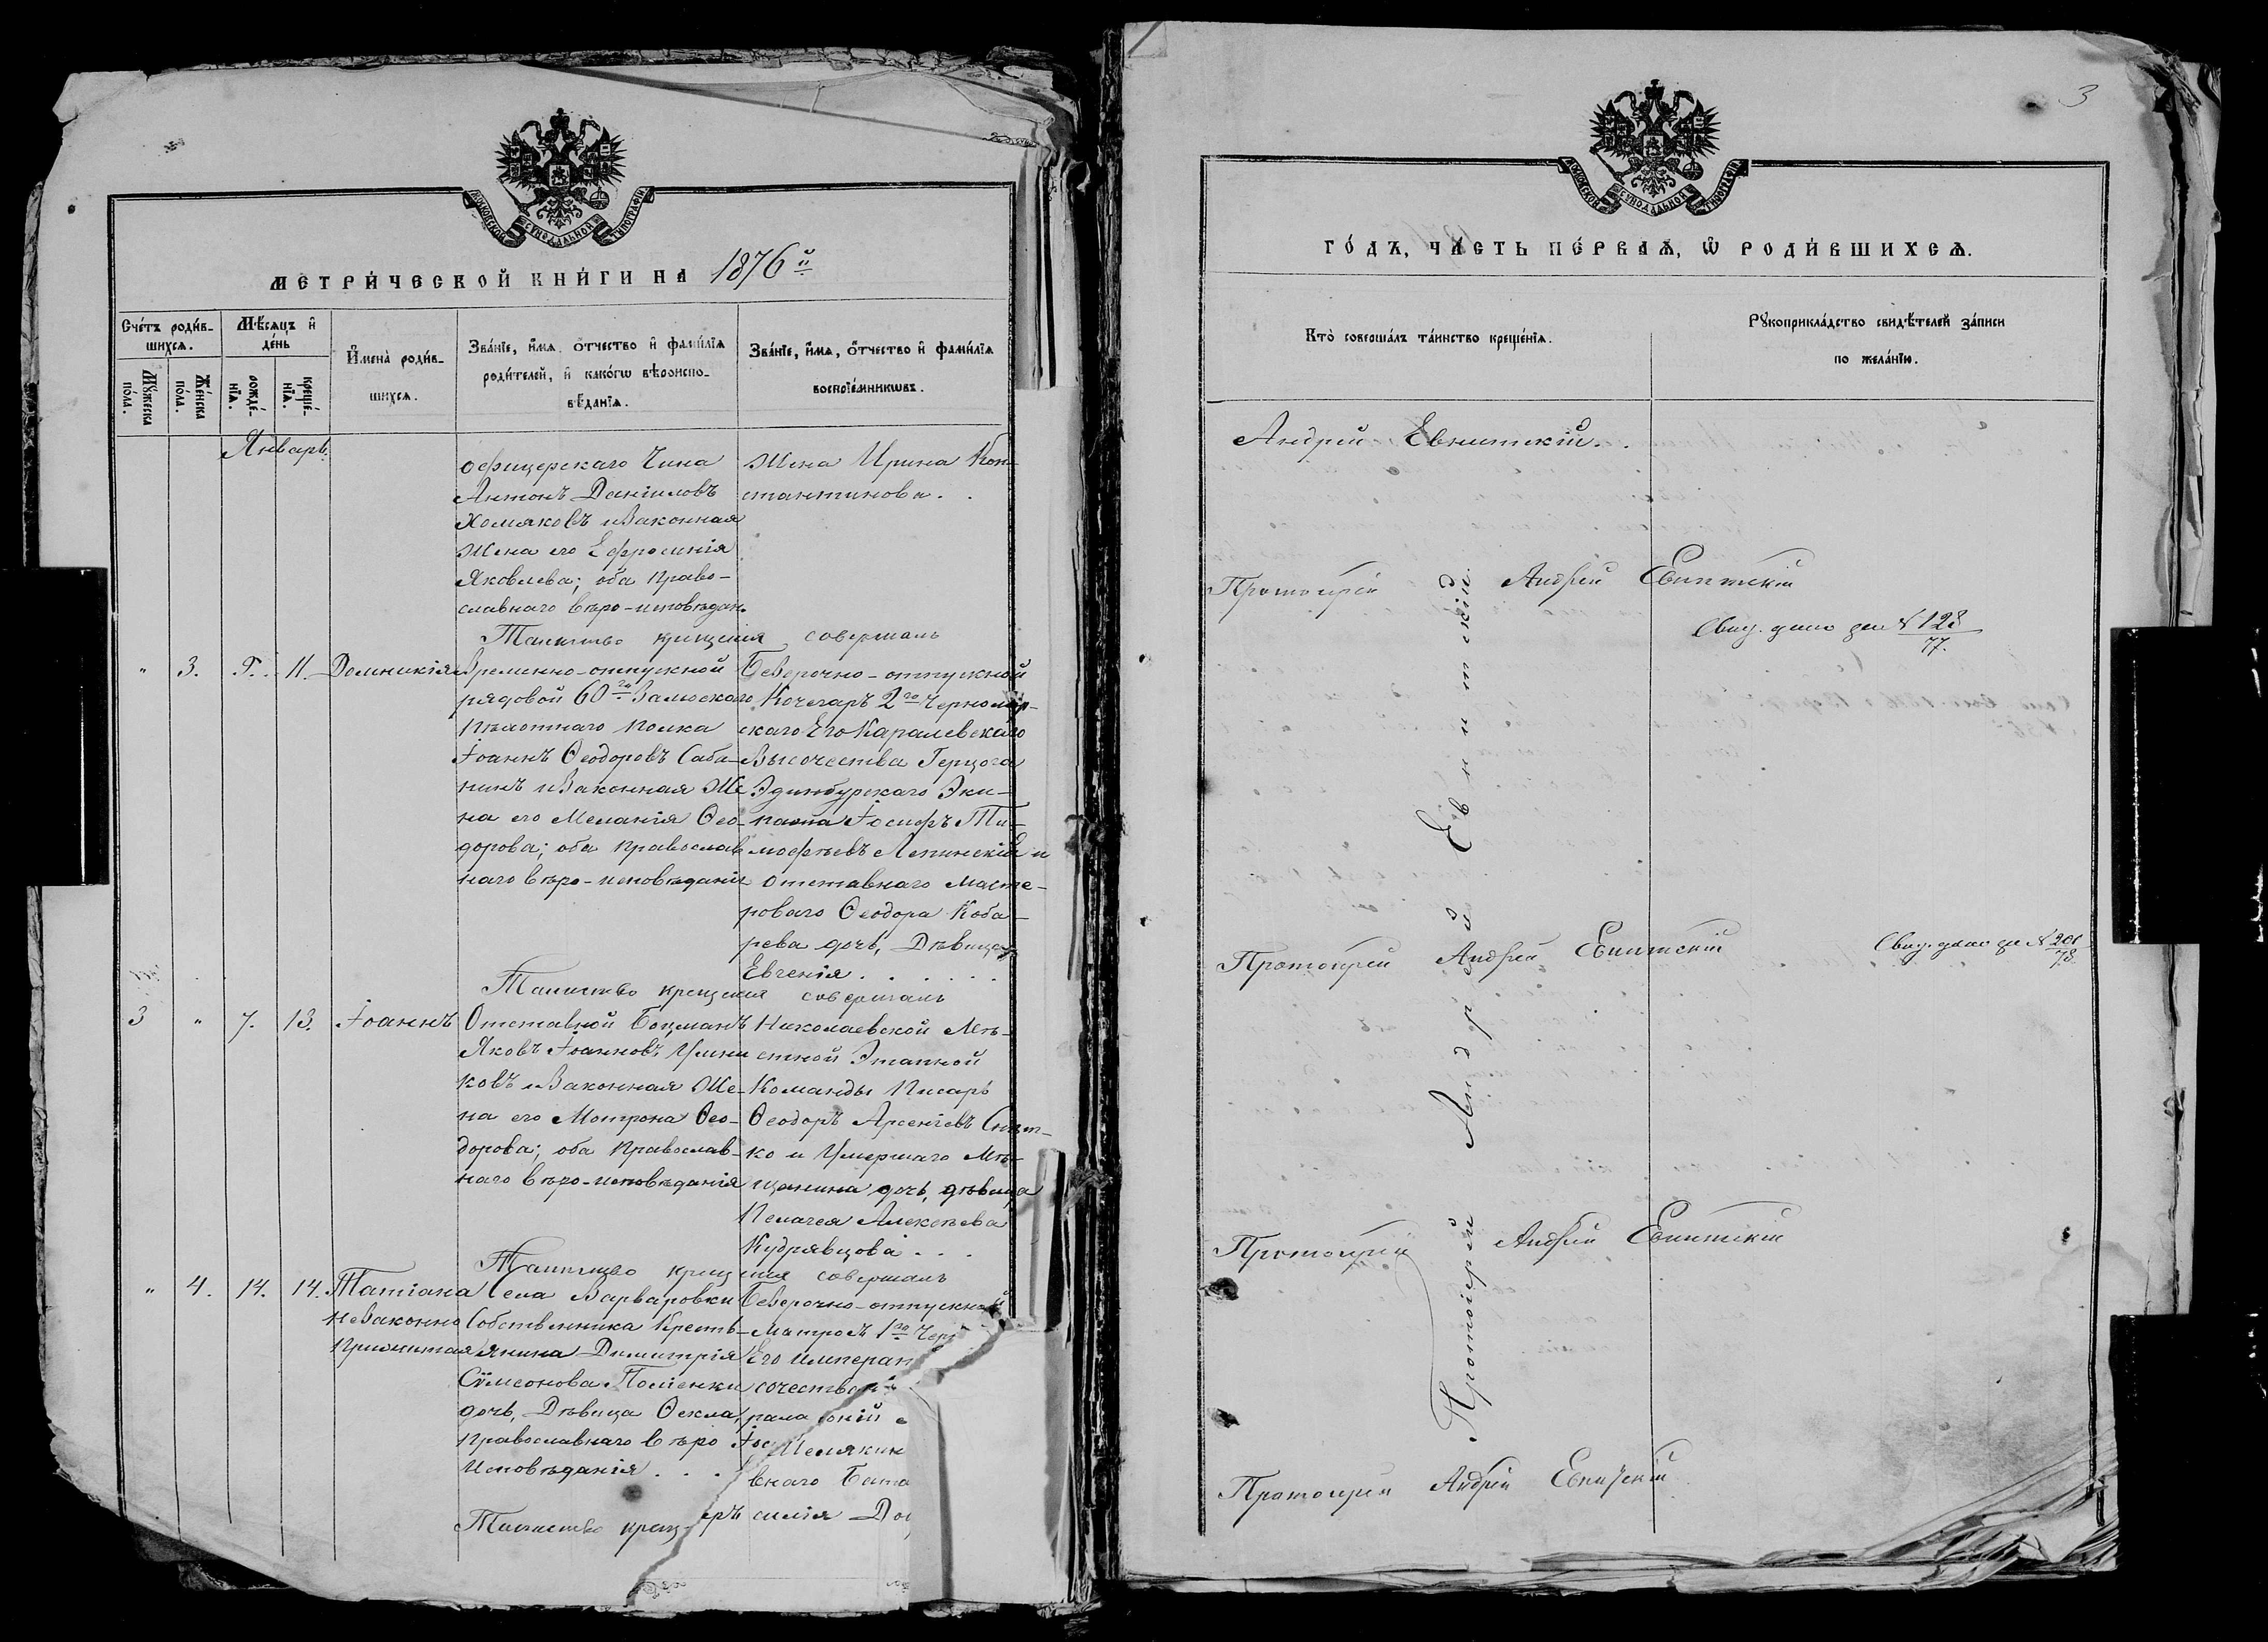 МОСКОВСКОЙ СУНОДАЛЬНОЙ ТУПОГРАФІИ
МЕТРИ́ЧЕСКОЙ КНИ́ГИ НА 1876й
Сче́тъ роди́в-
шихсѧ.
Мѣ́сѧцъ и҆
де́нь
Мꙋ́жеска
по́ла.
Же́нска
по́ла.
рожде́-
нїѧ.
креще́-
нїѧ.
И҆мена̀ роди́в-
шихсѧ.
Зва́нїе, и҆́мѧ, ѻ҆́тчество и҆ фами́лїѧ
роди́телей, и҆ како́гѡ вѣроиспо-
вѣ́данїѧ.
Зва́нїе, и҆́мѧ, ѻ҆́тчество и҆ фами́лїѧ
воспрїе́мникѡвъ.
Январь.
офицерскаго Чина
Антонъ Даніиловъ
Хомяковъ и Законная
Жена его Ефросинія
Яковлева; оба Право-
славнаго веро-исповѣдан.
Жена Ирина Кон-
стантинова. .
Таинство крещенія совершалъ
" 3. 9. 11. Домникія
Временно-отпускной
рядовой 60го Замоскаго
Пехотнаго Полка
Іоаннъ Ѳеодоровъ Саба-
нинъ и Законная Же
на его Меланія Ѳео-
дорова; оба Православ
наго веро-исповѣданія
Безсрочно-отпускной
Кочегаръ 2го Черномор-
скаго Его Каралевскаго
Высочества Герцога
Эдинбурскаго Эки-
пажа Іосифъ Ти-
мофѣевъ Лепинскій и
отставнаго Масте-
роваго Ѳеодора Коба-
рева дочь, Дѣвица
Евгенія . . . . .
Таинство крещенія совершалъ
3 " 7. 13. Іоаннъ
Отставной Боцманъ
Яковъ Іоанновъ Умни
ковъ и Законная Же-
на его Мотрона Ѳео-
дорова; оба Православ-
наго веро-исповѣданія
Николаевской Мѣ-
стной Этапной
Команды Писарь
Ѳеодоръ Арсеніевъ
ко и Умершаго Мѣ-
щанина дочь, дѣвица
Пелагея Алексѣева
Кудрявцова . . .
Таинство крещенія совершалъ
" 4. 14. 14. Татіана
незаконно
прижитая
Села Варваровки
Собственника Кресть-
янина Димитрія
Сѵмеонова Поліенки
дочь, Дѣвица Ѳекла,
Православнаго веро
исповѣданія . . .
Безсрочно-отпускной
Матросъ 1го Чер
Его Император
сочества
рала
Шелякин
внаго
силія
Таинство крещ
3
ГО́ДЪ, ЧА́СТЬ ПЕ́РВАѦ, Ѡ҆ РОДИ́ВШИХСѦ.
Кто̀ соверша́лъ та́инство креще́нїѧ.
Рꙋкоприкла́дство свидѣ́телей за́писи
по жела́нїю.
Андрей Евнитскій. .
Протоіерей Андрей Евнитскій
Свид. дано за № 128
77.
Протоіерей Андрей Евнитскій
Свид. дано за № 201
78.
Протоіерей Андрей Евнитскій
Протоіерей Андрей Евнитскій
Протоіерей Андрей Евнитскій.